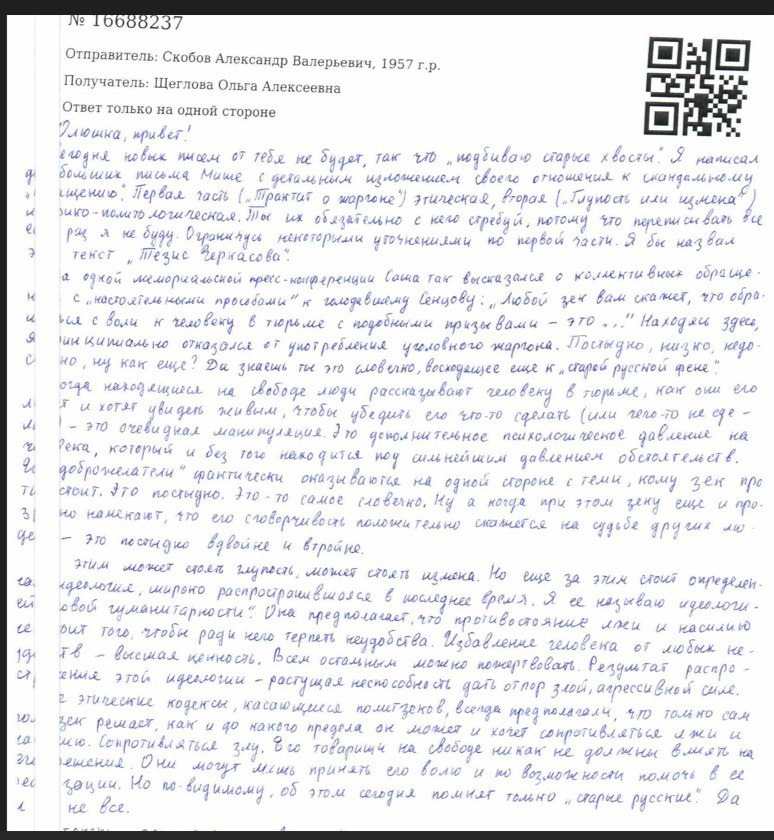 № 16688237
Отправитель: Скобов Александр Валерьевич, 1957 г.р.
Получатель: Щеглова Ольга Алексеевна
Ответ только на одной стороне
Олюшка, привет!
егодня новых писем от тебя не будет, так что „подбиваю старые хвосты“. Я написал
больших письма Мише с детальным изложением своего отношения к скандальному
ащению“. Первая часть („Трактат о жаргоне“) этическая, вторая („Глупость или измена“)
рико-политологическая. Ты их обязательно с него стребуй, потому что переписывать все
раз я не буду. Ограничусь некоторыми уточнениями по первой части. Я бы назвал
текст „Тезис Черкасова“.
а одной мемориальской пресс-конференции Саша так высказался о коллективных обраще-
с „настоятельными просьбами“ к голодавшему Сенцову: „Любой зек вам скажет, что обра-
ься с воли к человеку в тюрьме с подобными призывами – это ...“ Находясь здесь,
инципиально отказался от употребления уголовного жаргона. Постыдно, низко, недо-
но, ну как еще? Да знаешь ты это словечко, восходящее еще к „старой русской фене“.
огда находящиеся на свободе люди рассказывают человеку в тюрьме, как они его
т и хотят увидеть живым, чтобы убедить его что-то сделать (или чего-то не сде-
) – это очевидная манипуляция. Это дополнительное психологическое давление на
века, который и без того находится под сильнейшим давлением обстоятельств.
доброжелатели“ фактически оказываются на одной стороне с теми, кому зек про
стоит. Это постыдно. Это-то самое словечко. Ну а когда при этом зеку еще и про-
но намекают, что его сговорчивость положительно скажется на судьбе других лю-
– это постыдно вдвойне и втройне.
этим может стоять глупость, может стоять измена. Но еще за этим стоит определен-
идеология, широко распространившаяся в последнее время. Я ее называю идеологи-
овой гуманитарности“. Она предполагает, что противостояние лжи и насилию
оит того, чтобы ради него терпеть неудобства. Избавление человека от любых не-
ств – высшая ценность. Всем остальным можно пожертвовать. Результат распро-
ения этой идеологии – растущая неспособность дать отпор злой, агрессивной силе.
е этические кодексы, касающиеся политзеков, всегда предполагали, что только сам
зек решает, как и до какого предела он может и хочет сопротивляться лжи и
ию. Сопротивляться злу. Его товарищи на свободе никак не должны влиять на
ешение. Они могут лишь принять его волю и по возможности помочь в ее
зации. Но по-видимому, об этом сегодня помнят только „старые русские“. Да
не все.